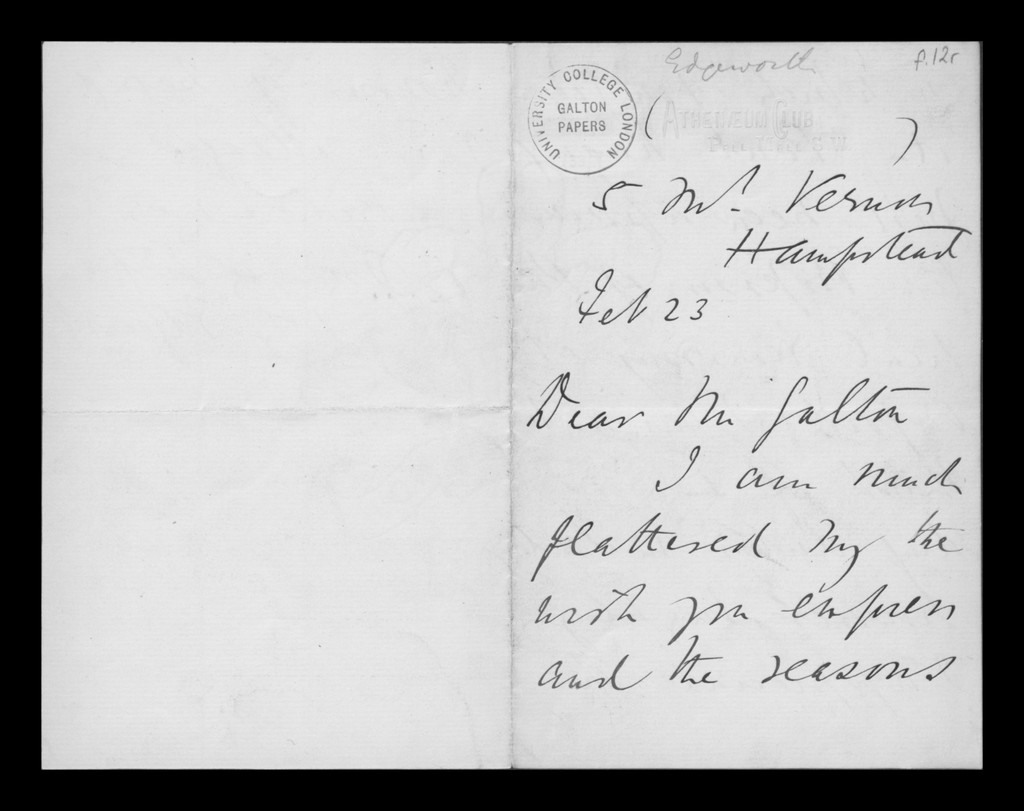 Edgeworth
f.12r
UNIVERSITY COLLEGE LONDON
GALTON
PAPERS
( ATHENÆUM CLUB
PALL MALL S.W. )
5 Mt. Vernon
Hampstead
Feb 23
Dear Mr Galton
I am much
flattered by the
wish you express
and the reasons